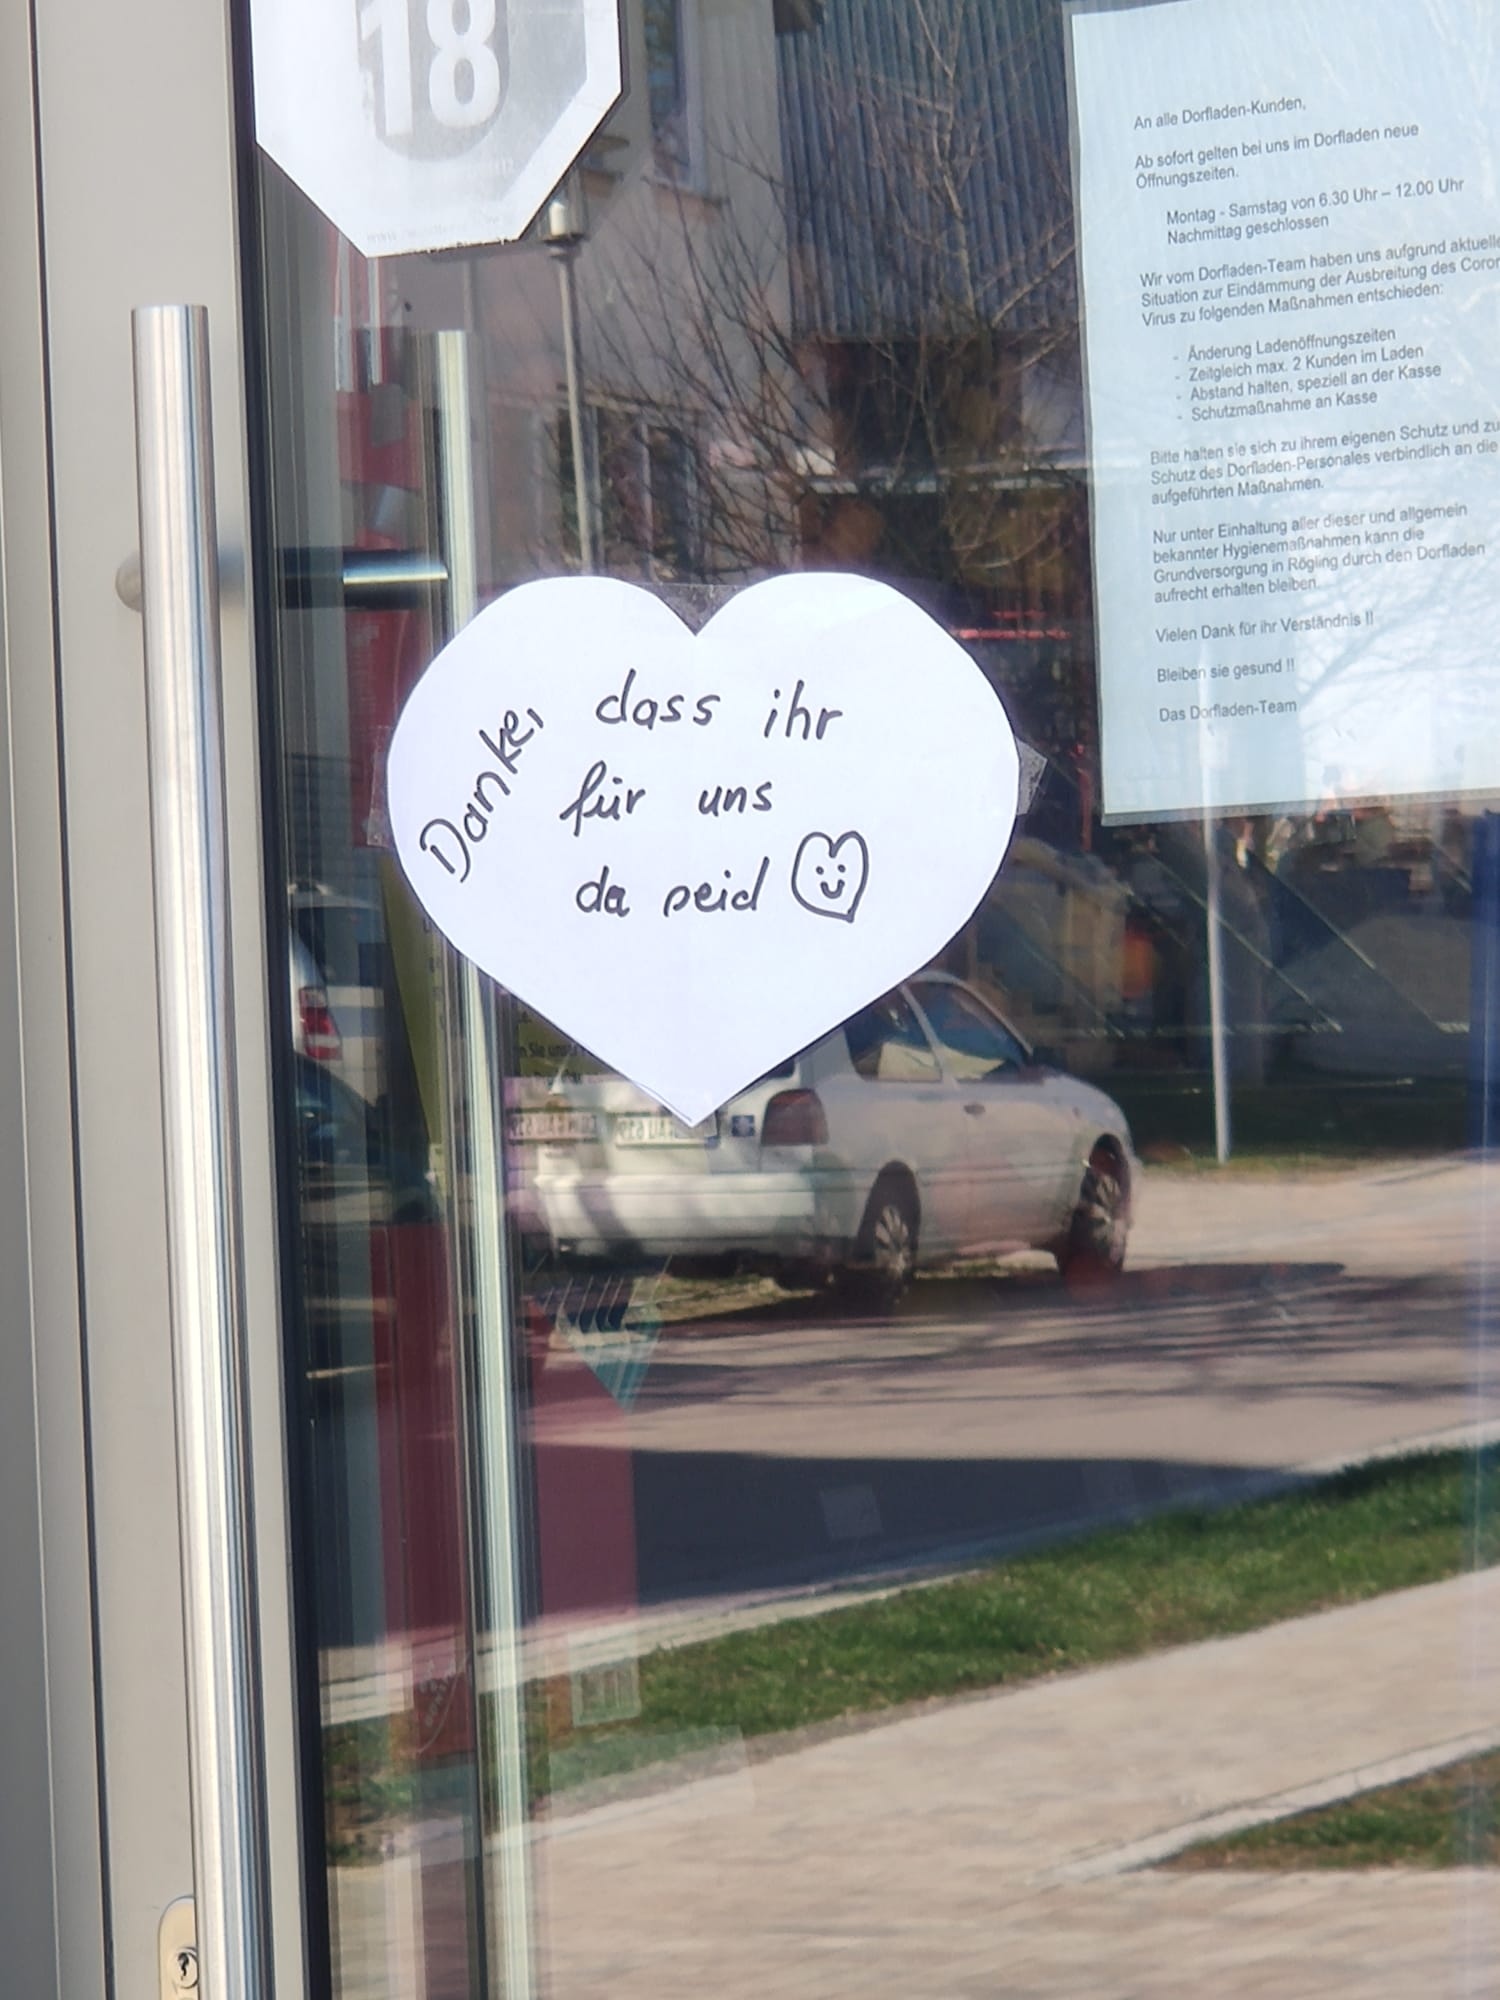 18
An alle Dorfladen-Kunden,
Ab sofort gelten bei uns im Dorfladen neue
Öffnungszeiten.
Montag - Samstag von 6.30 Uhr – 12.00 Uhr
Nachmittag geschlossen
Wir vom Dorfladen-Team haben uns aufgrund aktuelle
Situation zur Eindämmung der Ausbreitung des Coron
Virus zu folgenden Maßnahmen entschieden:
- Änderung Ladenöffnungszeiten
- Zeitgleich max. 2 Kunden im Laden
- Abstand halten, speziell an der Kasse
- Schutzmaßnahme an Kasse
Bitte halten sie sich zu ihrem eigenen Schutz und zu
Schutz des Dorfladen-Personales verbindlich an die
aufgeführten Maßnahmen.
Nur unter Einhaltung aller dieser und allgemein
bekannter Hygienemaßnahmen kann die
Grundversorgung in Rögling durch den Dorfladen
aufrecht erhalten bleiben.
Vielen Dank für ihr Verständnis !!
Bleiben sie gesund !!
Das Dorfladen-Team
Danke, dass ihr
für uns
da seid